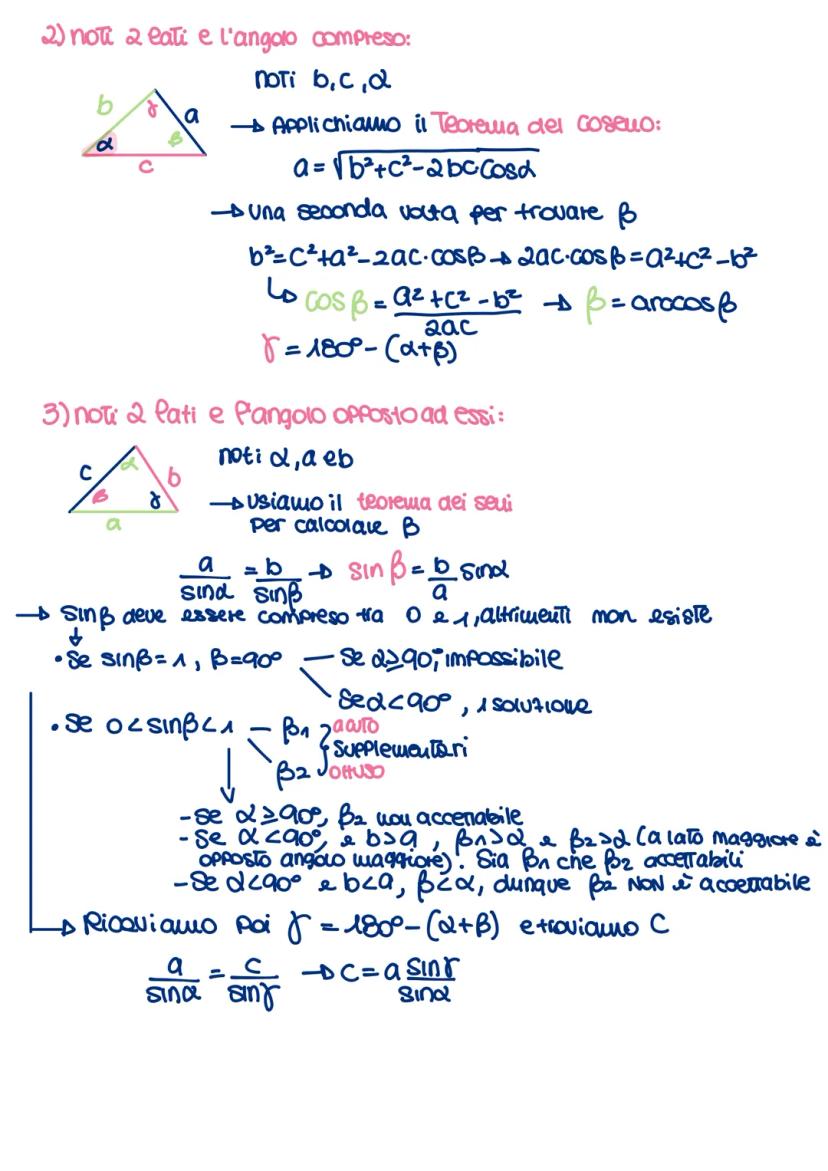 2) noti 2 lati e l'angolo compreso:
noti b, c, α
b γ a
α β
c
→ Applichiamo il Teorema del coseno:
a = √b²+c²-2bc cosα
→ una seconda volta per trovare β
b² = c²+a²-2ac·cosβ → 2ac·cosβ = a²+c²-b²
↳ cosβ = a²+c²-b² / 2ac → β = arccosβ
γ = 180° - (α+β)
3) noti 2 lati e l'angolo opposto ad essi:
noti α, a e b
c α b
β γ
a
→ usiamo il teorema dei seni
per calcolare β
a / sinα = b / sinβ → sinβ = b / a sinα
→ sinβ deve essere compreso tra 0 e 1, altrimenti non esiste
↓
• Se sinβ = 1, β = 90° — Se α ≥ 90°, impossibile
Se α < 90°, 1 soluzione
• Se 0 < sinβ < 1 — β1 } acuto
supplementari
β2 } ottuso
- Se α ≥ 90°, β2 non accettabile
- Se α < 90°, e b > a, β1 > α e β2 > α (a lato maggiore è
opposto angolo maggiore). Sia β1 che β2 accettabili
- Se α < 90° e b < a, β < α, dunque β2 NON è accettabile
→ Ricaviamo poi γ = 180° - (α+β) e troviamo C
a / sinα = c / sinγ → c = a sinγ / sinα